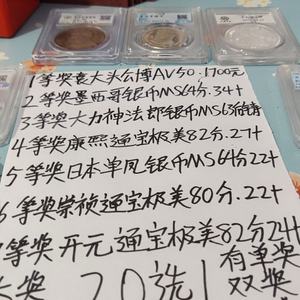 1等奖袁大头公博AV50.1700元
2等奖墨西哥银币MS64分.34+
3等奖大力神法郎银币MS63
4等奖康熙通宝极美82分.27+
5等奖日本单凤银币MS64分22+
6等奖崇祯通宝极美80分.22+
等奖开元通宝极美82分24+
20选1
有单奖
双奖